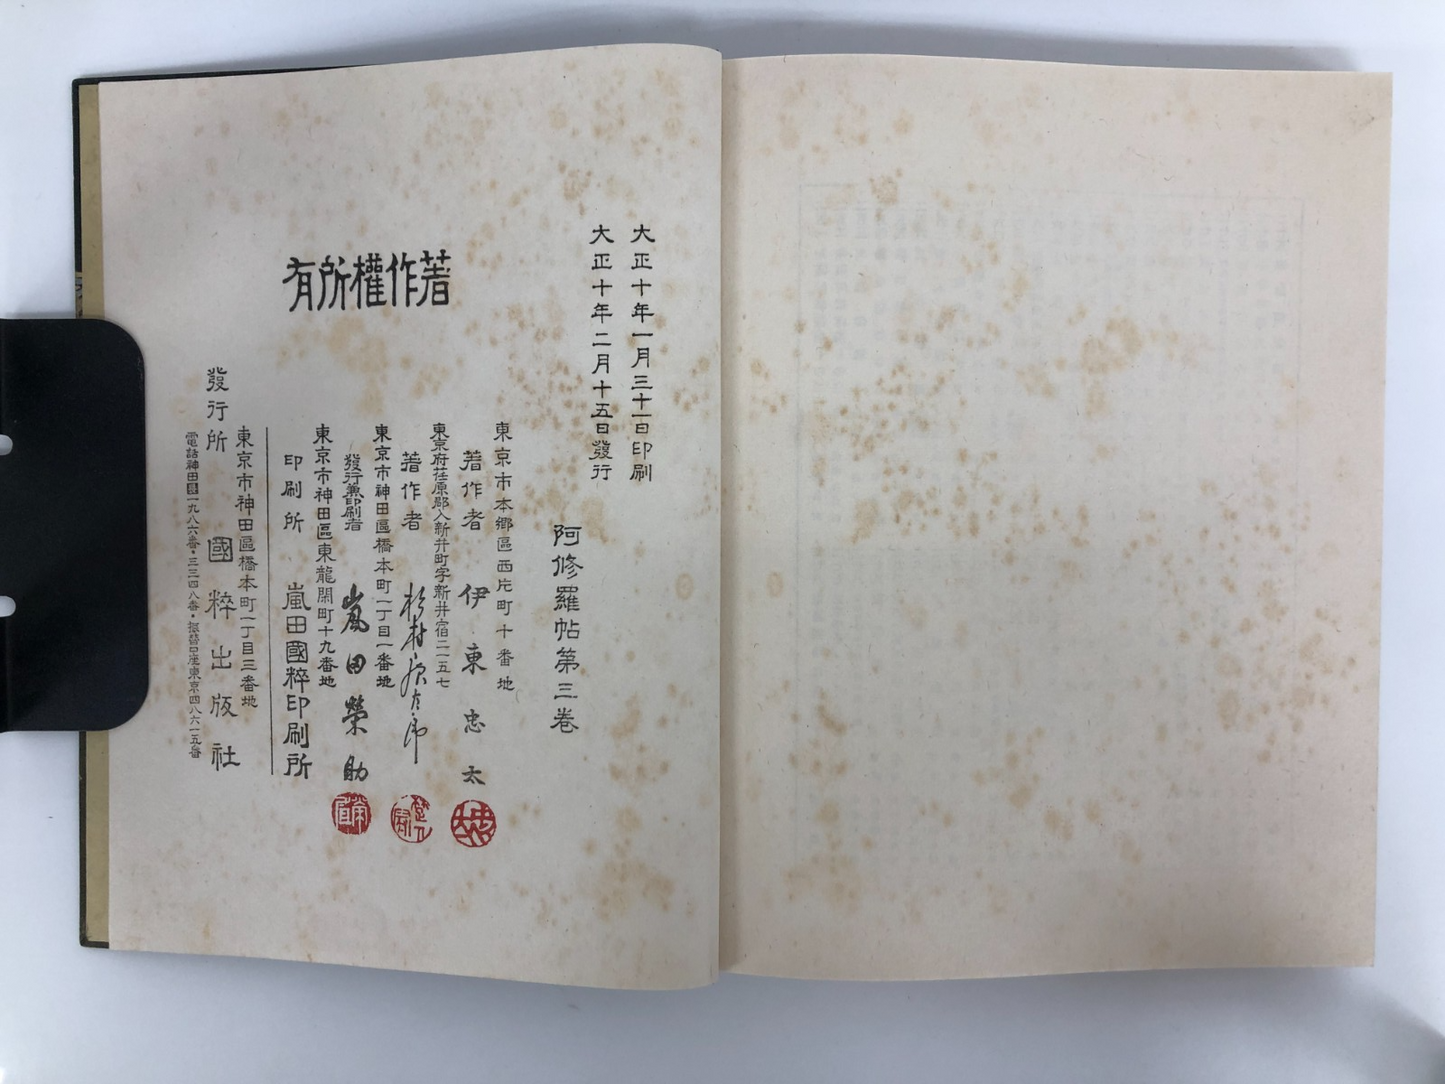 大正十年一月三十一日印刷
大正十年二月十五日發行
阿修羅帖第三卷
東京市本鄉區西片町十番地
著作者 伊東忠太
東京府荏原郡入新井町字新井宿二一五七
著作者 杉村廣太郎
東京市神田區橋本町一丁目一番地
發行兼印刷者 嵐田榮助
東京市神田區東龍閑町十九番地
印刷所 嵐田國粹印刷所
著作權所有
東京市神田區橋本町一丁目三番地
發行所 國粹出版社
電話神田圓一九八六番・三三四八番・振替口座東京四八六一五番